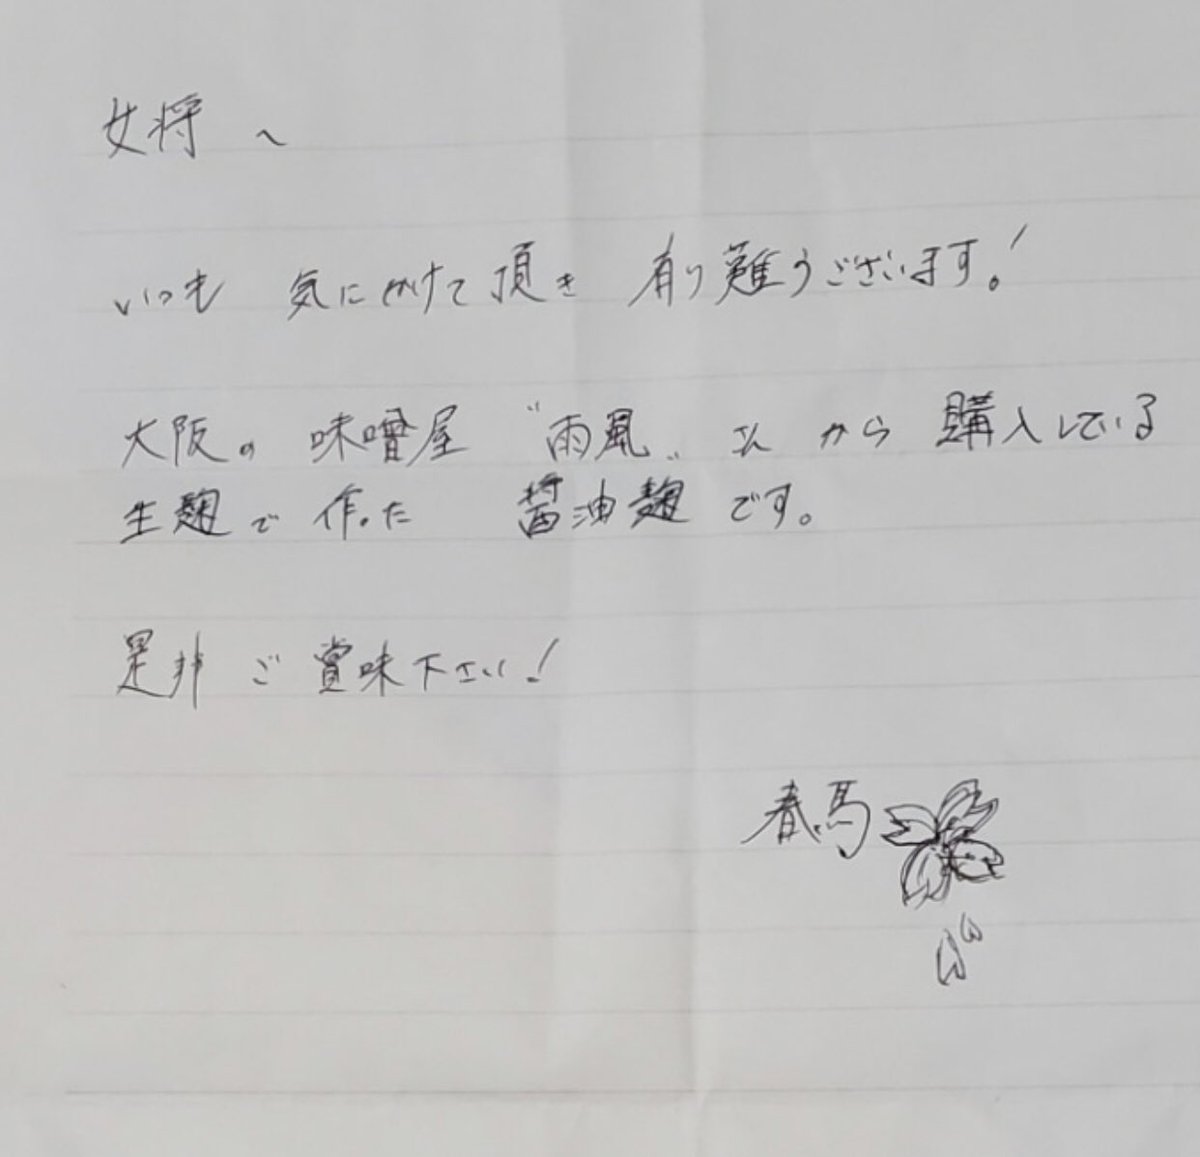 女将へ
いつも 気にかけて頂き 有り難うございます!
大阪の 味噌屋 "雨風" さん から 購入している
生麹で 作った 醤油麹 です。
是非 ご賞味下さい!
春馬